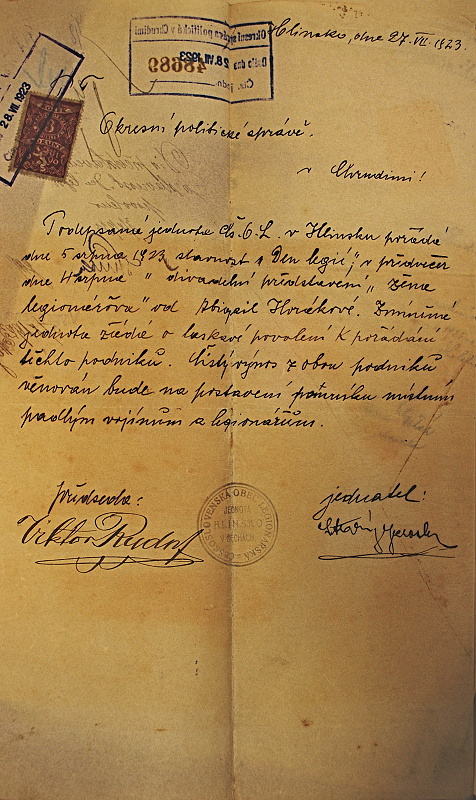 Hlinsko, dne 27. VII. 1923.
Okresní správa politická v Chrudimi
Došlo dne 28.VII.1923
48689
Čís. jedn.
28.VII.1923
Okresní politické správě.
v Chrudimi!
Podepsaná jednota Čs.O.L. v Hlinsku pořádá
dne 5 srpna 1923 slavnost „Den legií“, v předvečer
dne 4 srpna „divadelní představení „žena
legionářova“ od Abigail Horákové. Zmíněná
jednota žádá o laskavé povolení k pořádání
těchto podniků. Čistý výnos z obou podniků
věnován bude na postavení pomníku místním
padlým vojínům a legionářům.
předseda:
jednatel:
Viktor Rudolf
ČESKOSLOVENSKÁ OBEC LEGIONÁŘSKÁ
JEDNOTA
HLINSKO
V ČECHÁCH